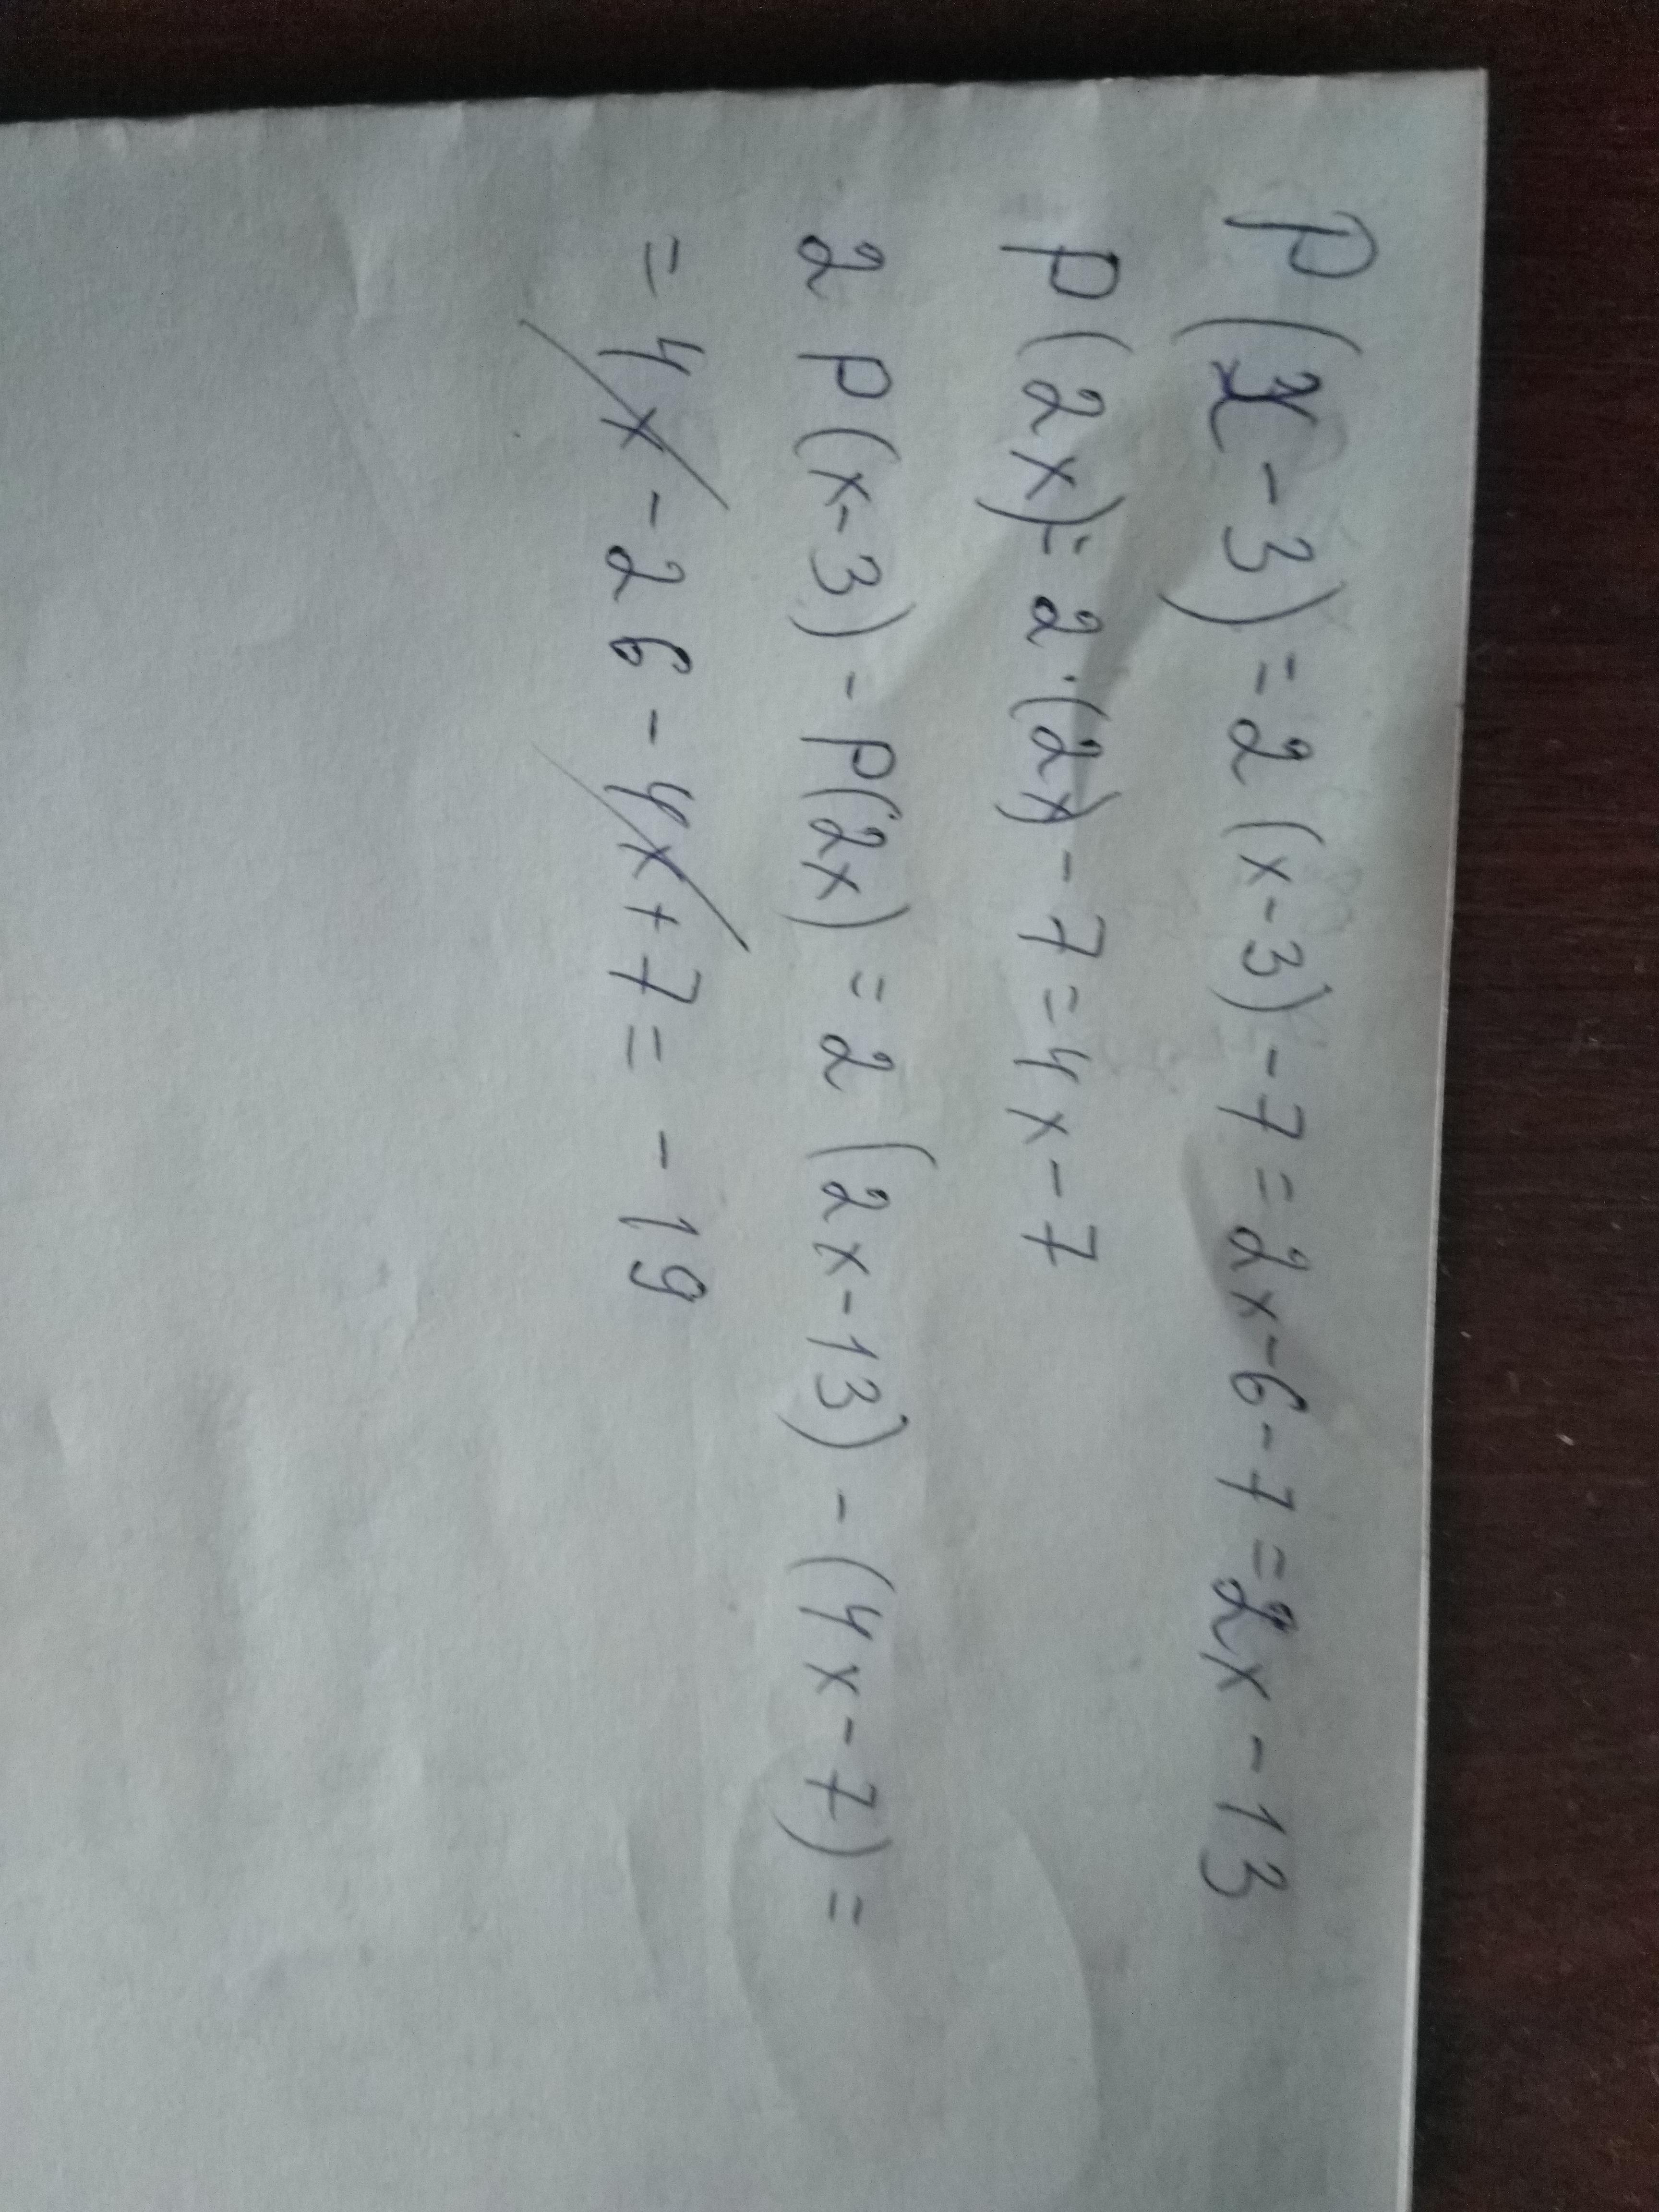 P(x-3)=2(x-3)-7=2x-6-7=2x-13
P(2x)=2·(2x)-7=4x-7
2P(x-3)-P(2x)=2(2x-13)-(4x-7)=
=4x-26-4x+7=-19